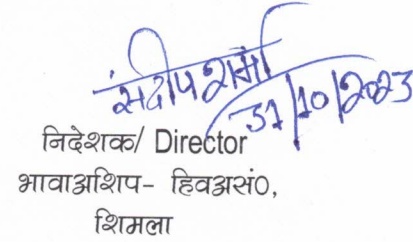 संदीप शर्मा
31/10/2023
निदेशक/ Director
भावाअशिप- हिवअसं०,
शिमला